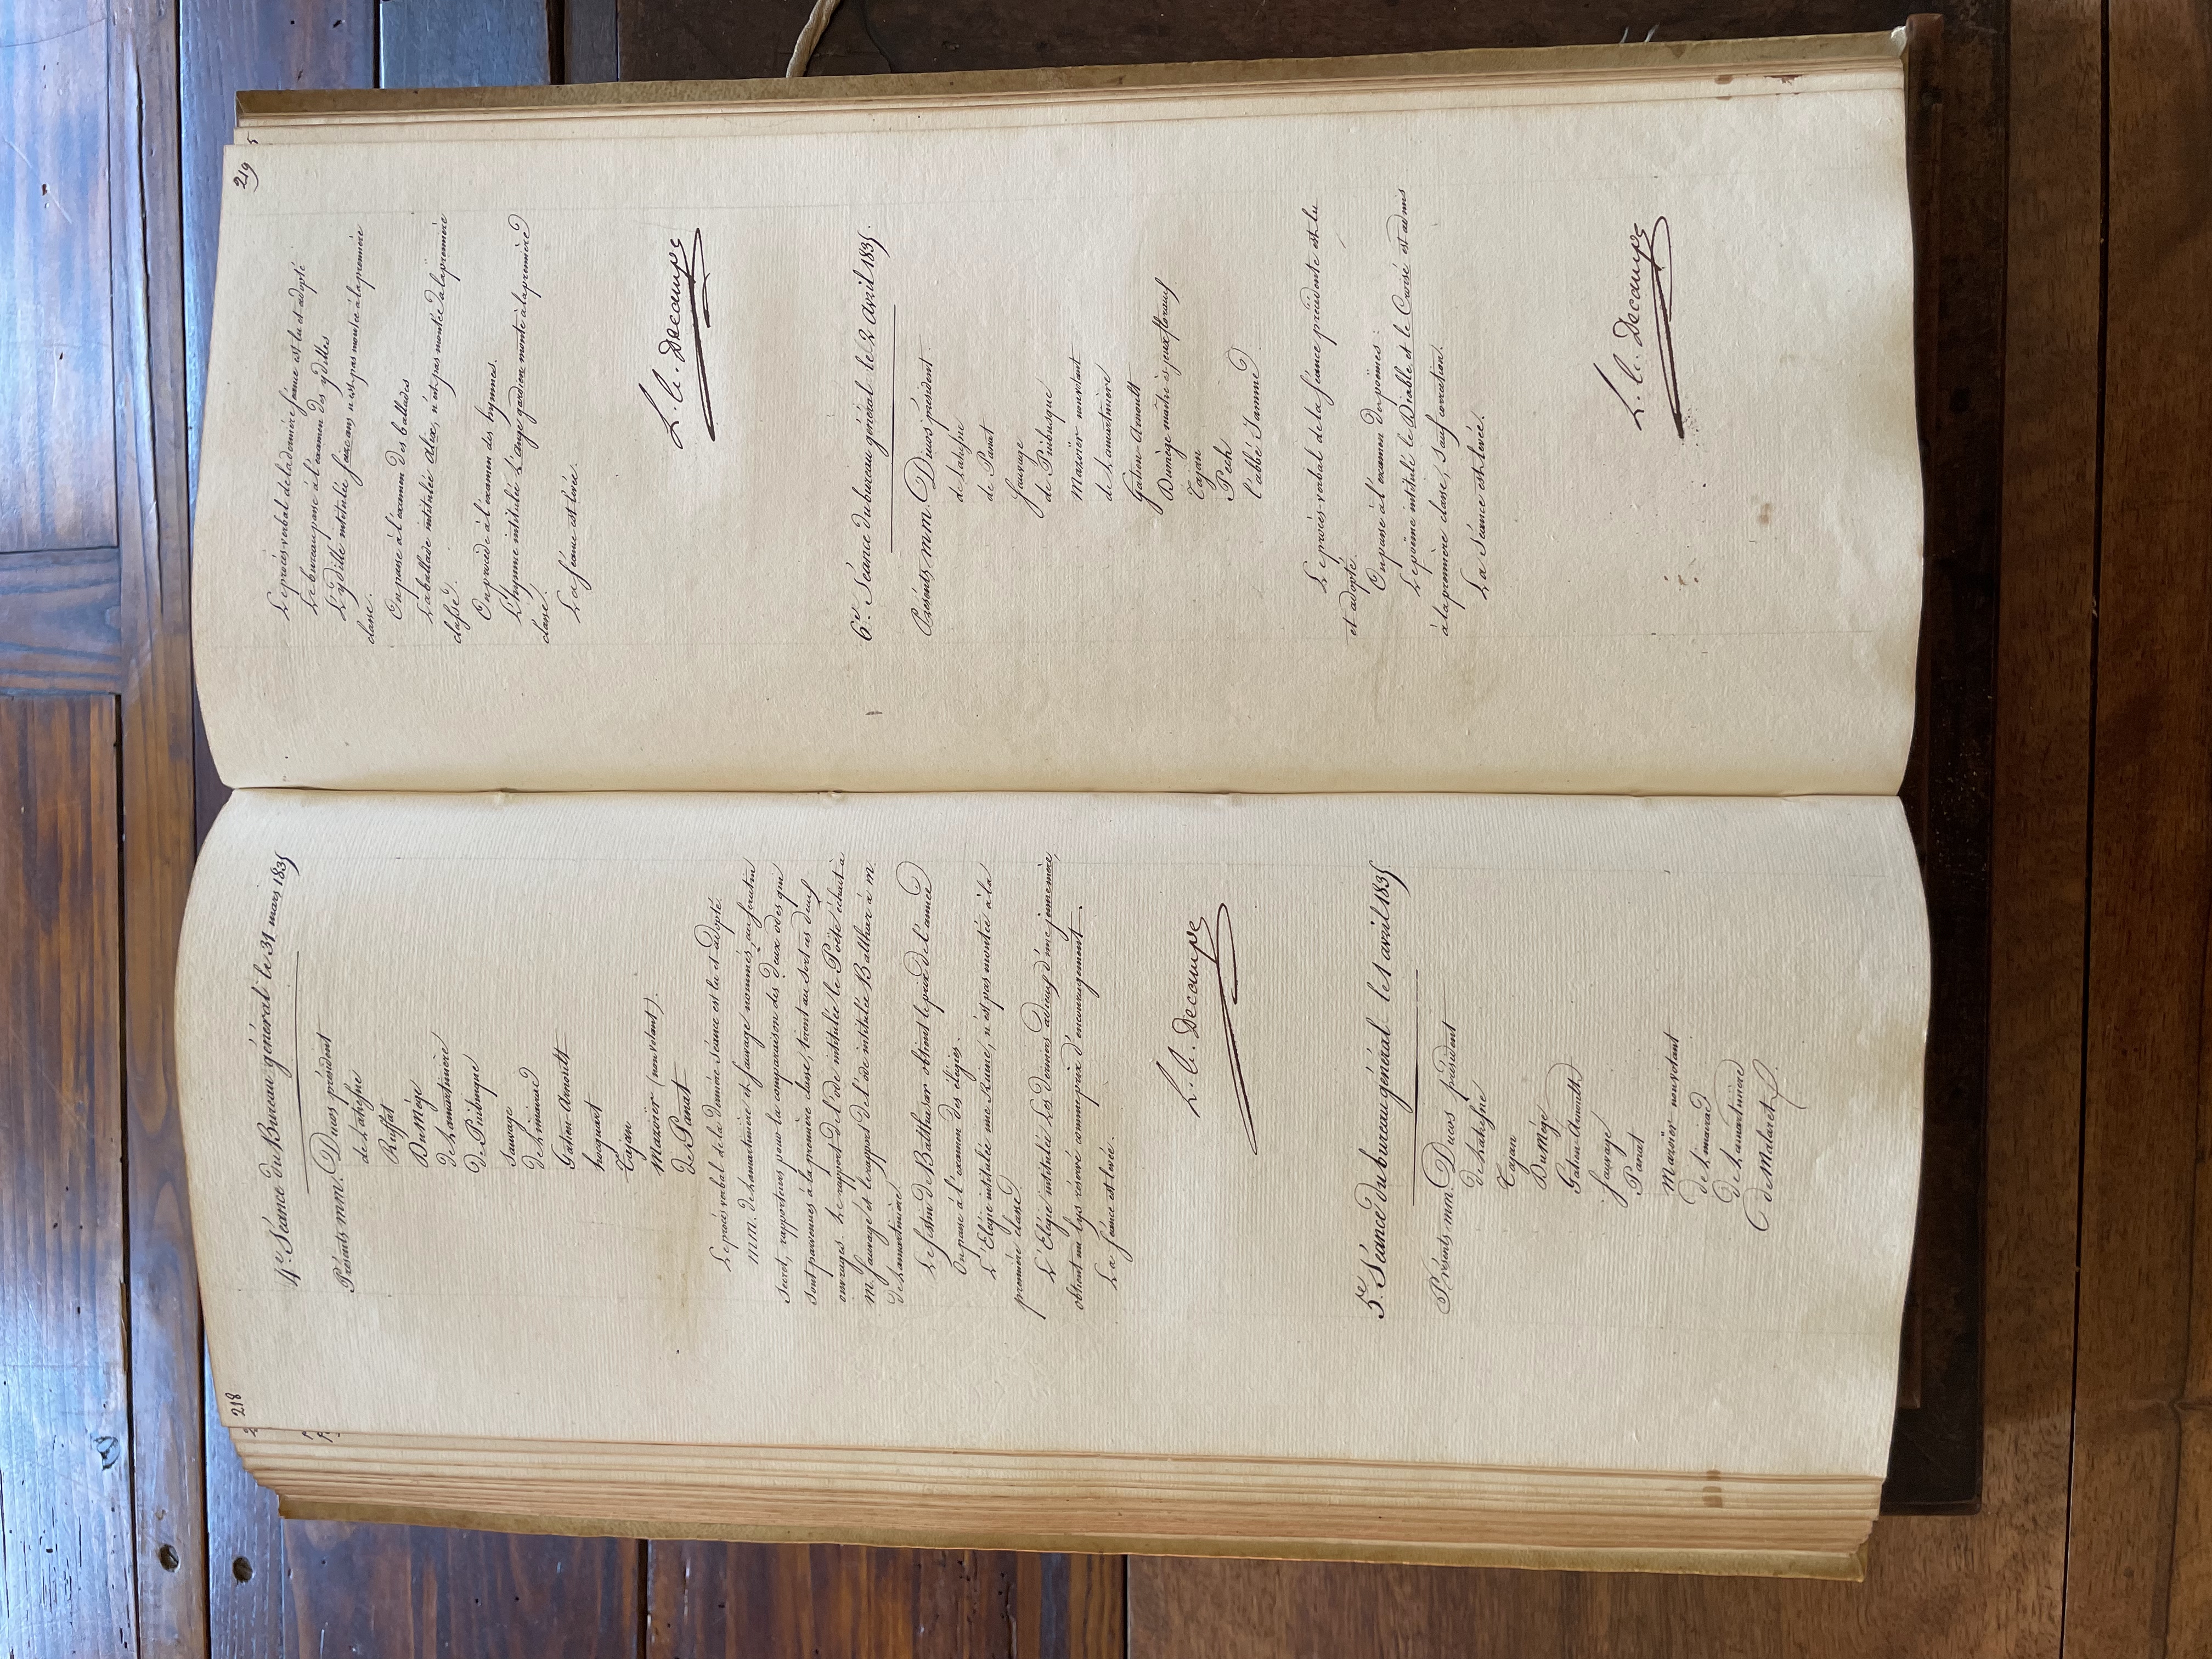 218
4.e Séance du Bureau général le 31 mars 1835
Présents m.m. Ducos président
de Lahesne
Ruffat
Du Mège
de Lamartinière
de Puibusque
Sauvage
de Limairac
Gatien-Arnoult
hocquart
Tajan
Mazoïer (non votant).
de Panat
Le procès verbal de la dernière séance est lu et adopté
M.M. de Lamartinière et Sauvage nommés, au scrutin
secret, rapporteurs pour la comparaison des deux odes qui
sont parvenues à la première classe, tirent au sort ces deux
ouvrages. Le rapport de l'ode intitulée le Poëte échoit à
M. Sauvage et le rapport de l'ode intitulée Balthazar à M.
de Lamartinière.
Le festin de Balthasar obtient le prix de l'année
On passe à l'examen des élégies.
L'Elégie intitulée une Ruine, n'est pas montée à la
première classe.
L'Elégie intitulée Les Derniers adieux d'une jeune mère,
obtient un lys réservé comme prix d'encouragement.
La séance est levée.
L. C. Decampe
5.e Séance du bureau général - le 1 avril 1835
Présents m.m. Ducos président
de Lahesne
Tajan
Du Mège
Gatien-Arnoult
Sauvage
Panat
Mazoïer non votant
de Limairac
de Lamartinière
C de Malaret
219
Le procès-verbal de la dernière séance est lu et adopté
Le bureau passe à l'examen des ydilles
L'ydille intitulée seize ans n'est pas montée à la première
classe.
On passe à l'examen des ballades
La ballade intitulée alix, n'est pas montée à la première
classe.
On procède à l'examen des hymnes.
L'hymne intitulée L'ange gardien monte à la première
classe.
La séance est levée.
L. C. Decampe
6.e Séance du bureau général le 2 avril 1835.
Présents m.m. Ducos président.
de Lahesne
de Panat
Sauvage
de Puibusque
Mazoïer non votant
de Lamartinière
Gatien-Arnoult
Dumège maître ès jeux floraux
Tajan
Pech
l'abbé Jamme
Le procès-verbal de la séance précédente est lu
et adopté.
On passe à l'examen des poëmes :
Le poëme intitulé le Diable et le Curé est admis
à la première classe, sauf correction.
La Séance est levée.
L. C. Decampe